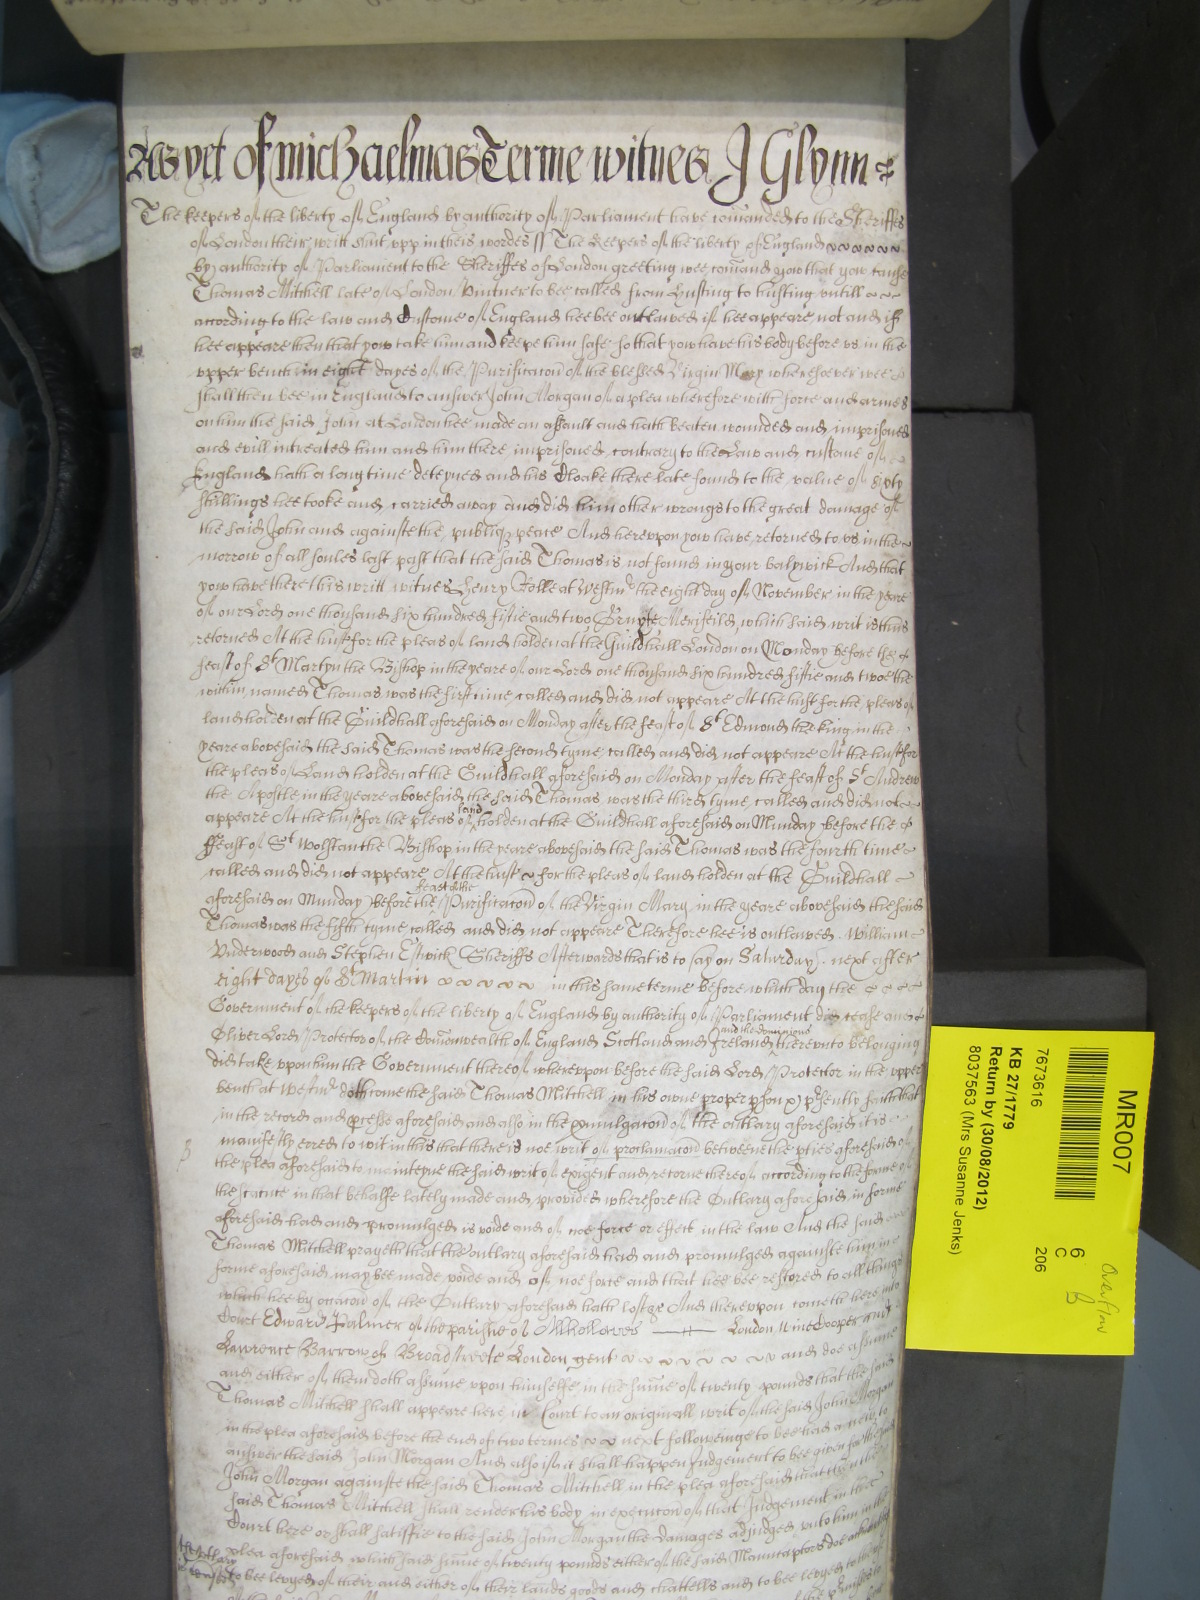 As yet of Michaelmas Terme witnes J Glynn
The keepers of the liberty of England by authority of Parliament have com̄anded to the Sheriffes
of London their writt shut upp in theis wordes ss The Keepers of the liberty of England
by authority of Parliament to the Sheriffes of London greeting wee com̄and yow that yow cause
Thomas Mitchell late of London Vintner to bee called from husting to husting untill
according to the law and Custome of England hee bee outlawed if hee appeare not and if
hee appeare then that yow take him and keepe him safe so that yow have his body before us in the
upper bench in eight dayes of the Purificac̄on of the blessed Virgin Mary wheresoever wee
shall then bee in England to answer John Morgan of a plea wherefore with force and armes
on him the said John at London hee made an assault and hath beaten wounded and imprisoned
and evill intreated him and him there imprisoned contrary to the Law and custome of
England hath a long time deteyned and his Cloake there late found to the value of sixty
shillings hee tooke and carried away and did him other wrongs to the great damage of
the said John and againste the publiq peace And hereupon yow have retorned to us in the
morrow of all soules last past that the said Thomas is not found in your balywick And that
yow have there this writt witnes Henry Rolle at Westm̄ the eight day of November in the yeare
of our Lord one thousand six hundred fiftie and two which said writ is thus
retorned At the hust for the pleas of land holden at the Guildhall London on Monday before the
feast of St Martyn the Bishop in the yeare of our Lord one thousand six hundred fiftie and twoe the
within named Thomas was the first time called and did not appeare At the hust for the pleas of
land holden at the Guildhall aforesaid on Monday after the feast of St Edmond the king in the
yeare abovesaid the said Thomas was the second tyme called and did not appeare At the hust for
the pleas of Land holden at the Guildhall aforesaid on Monday after the feast of St Andrew
the Apostle in the yeare abovesaid the said Thomas was the third tyme called and did not
appeare At the hust for the pleas of land holden at the Guildhall aforesaid on Munday before the
ffeast of St Wolstan the Bishop in the yeare abovesaid the said Thomas was the fourth time
called and did not appeare At the hust for the pleas of land holden at the Guildhall
aforesaid on Munday before the feast of the Purificac̄on of the Virgin Mary in the yeare abovesaid the said
Thomas was the fifth tyme called and did not appeare Therefore hee is outlawed William
Underwood and Stephen Estwick Sheriffs Afterwards that is to say on Saturday next after
eight dayes of St Martin in this same terme before which day the
Government of the keepers of the liberty of England by authority of Parliament did cease and
Oliver Lord Protector of the Com̄onwealth of England Scotland and Ireland and the dominions thereunto belonging
did take upon him the Government thereof whereupon before the said Lord Protector in the upper
bench at Westm̄ doth come the said Thomas Mitchell in his owne proper pson & psently saith that
in the record and pcesse aforesaid and also in the pmulgac̄on of the outlary aforesaid it is
manifestly erred to wit in this that there is noe writ of proclamac̄on betweene the pties aforesaid of
the plea aforesaid to mainteyne the said writ of exigent and retorne thereof according to the forme of
the statute in that behalfe lately made and provided wherefore the Outlary aforesaid in forme
aforesaid had and promulged is voide and of noe force or effect in the law And the said
Thomas Mitchell prayeth that the outlary aforesaid had and promulged againste him in
forme aforesaid may bee made voide and of noe force and that hee bee restored to all things
which hee by occac̄on of the Outlary aforesaid hath lost And thereupon cometh here into
Court Edward Palmer of the parishe of Alhollowes London Winecooper and
Lawrence Barrow of Broadstreete London gent and doe assume
and either of them doth assume upon himselfe in the sum̄e of twenty pounds that the said
Thomas Mitchell shall appeare here in Court to an originall writ of the said John Morgan
in the plea aforesaid before the end of two termes next followeinge to bee had anew to
answer the said John Morgan And also if it shall happen Judgement to bee given for the said
John Morgan againste the said Thomas Mitchell in the plea aforesaid that then the
said Thomas Mitchell shall render his body in execuc̄on of that Judgement in this
Court here or shall satisfie to the said John Morgan the damages adjudged unto him in the
plea aforesaid which said sum̄e of twenty pounds either of the said Manucaptors doe
to bee levyed of their and either of their lands goods and chattells and to bee levyed to the
MR007
6
C
206
7673616
KB 27/1779
Return by (30/08/2012)
8037563 (Mrs Susanne Jenks)
Overflow